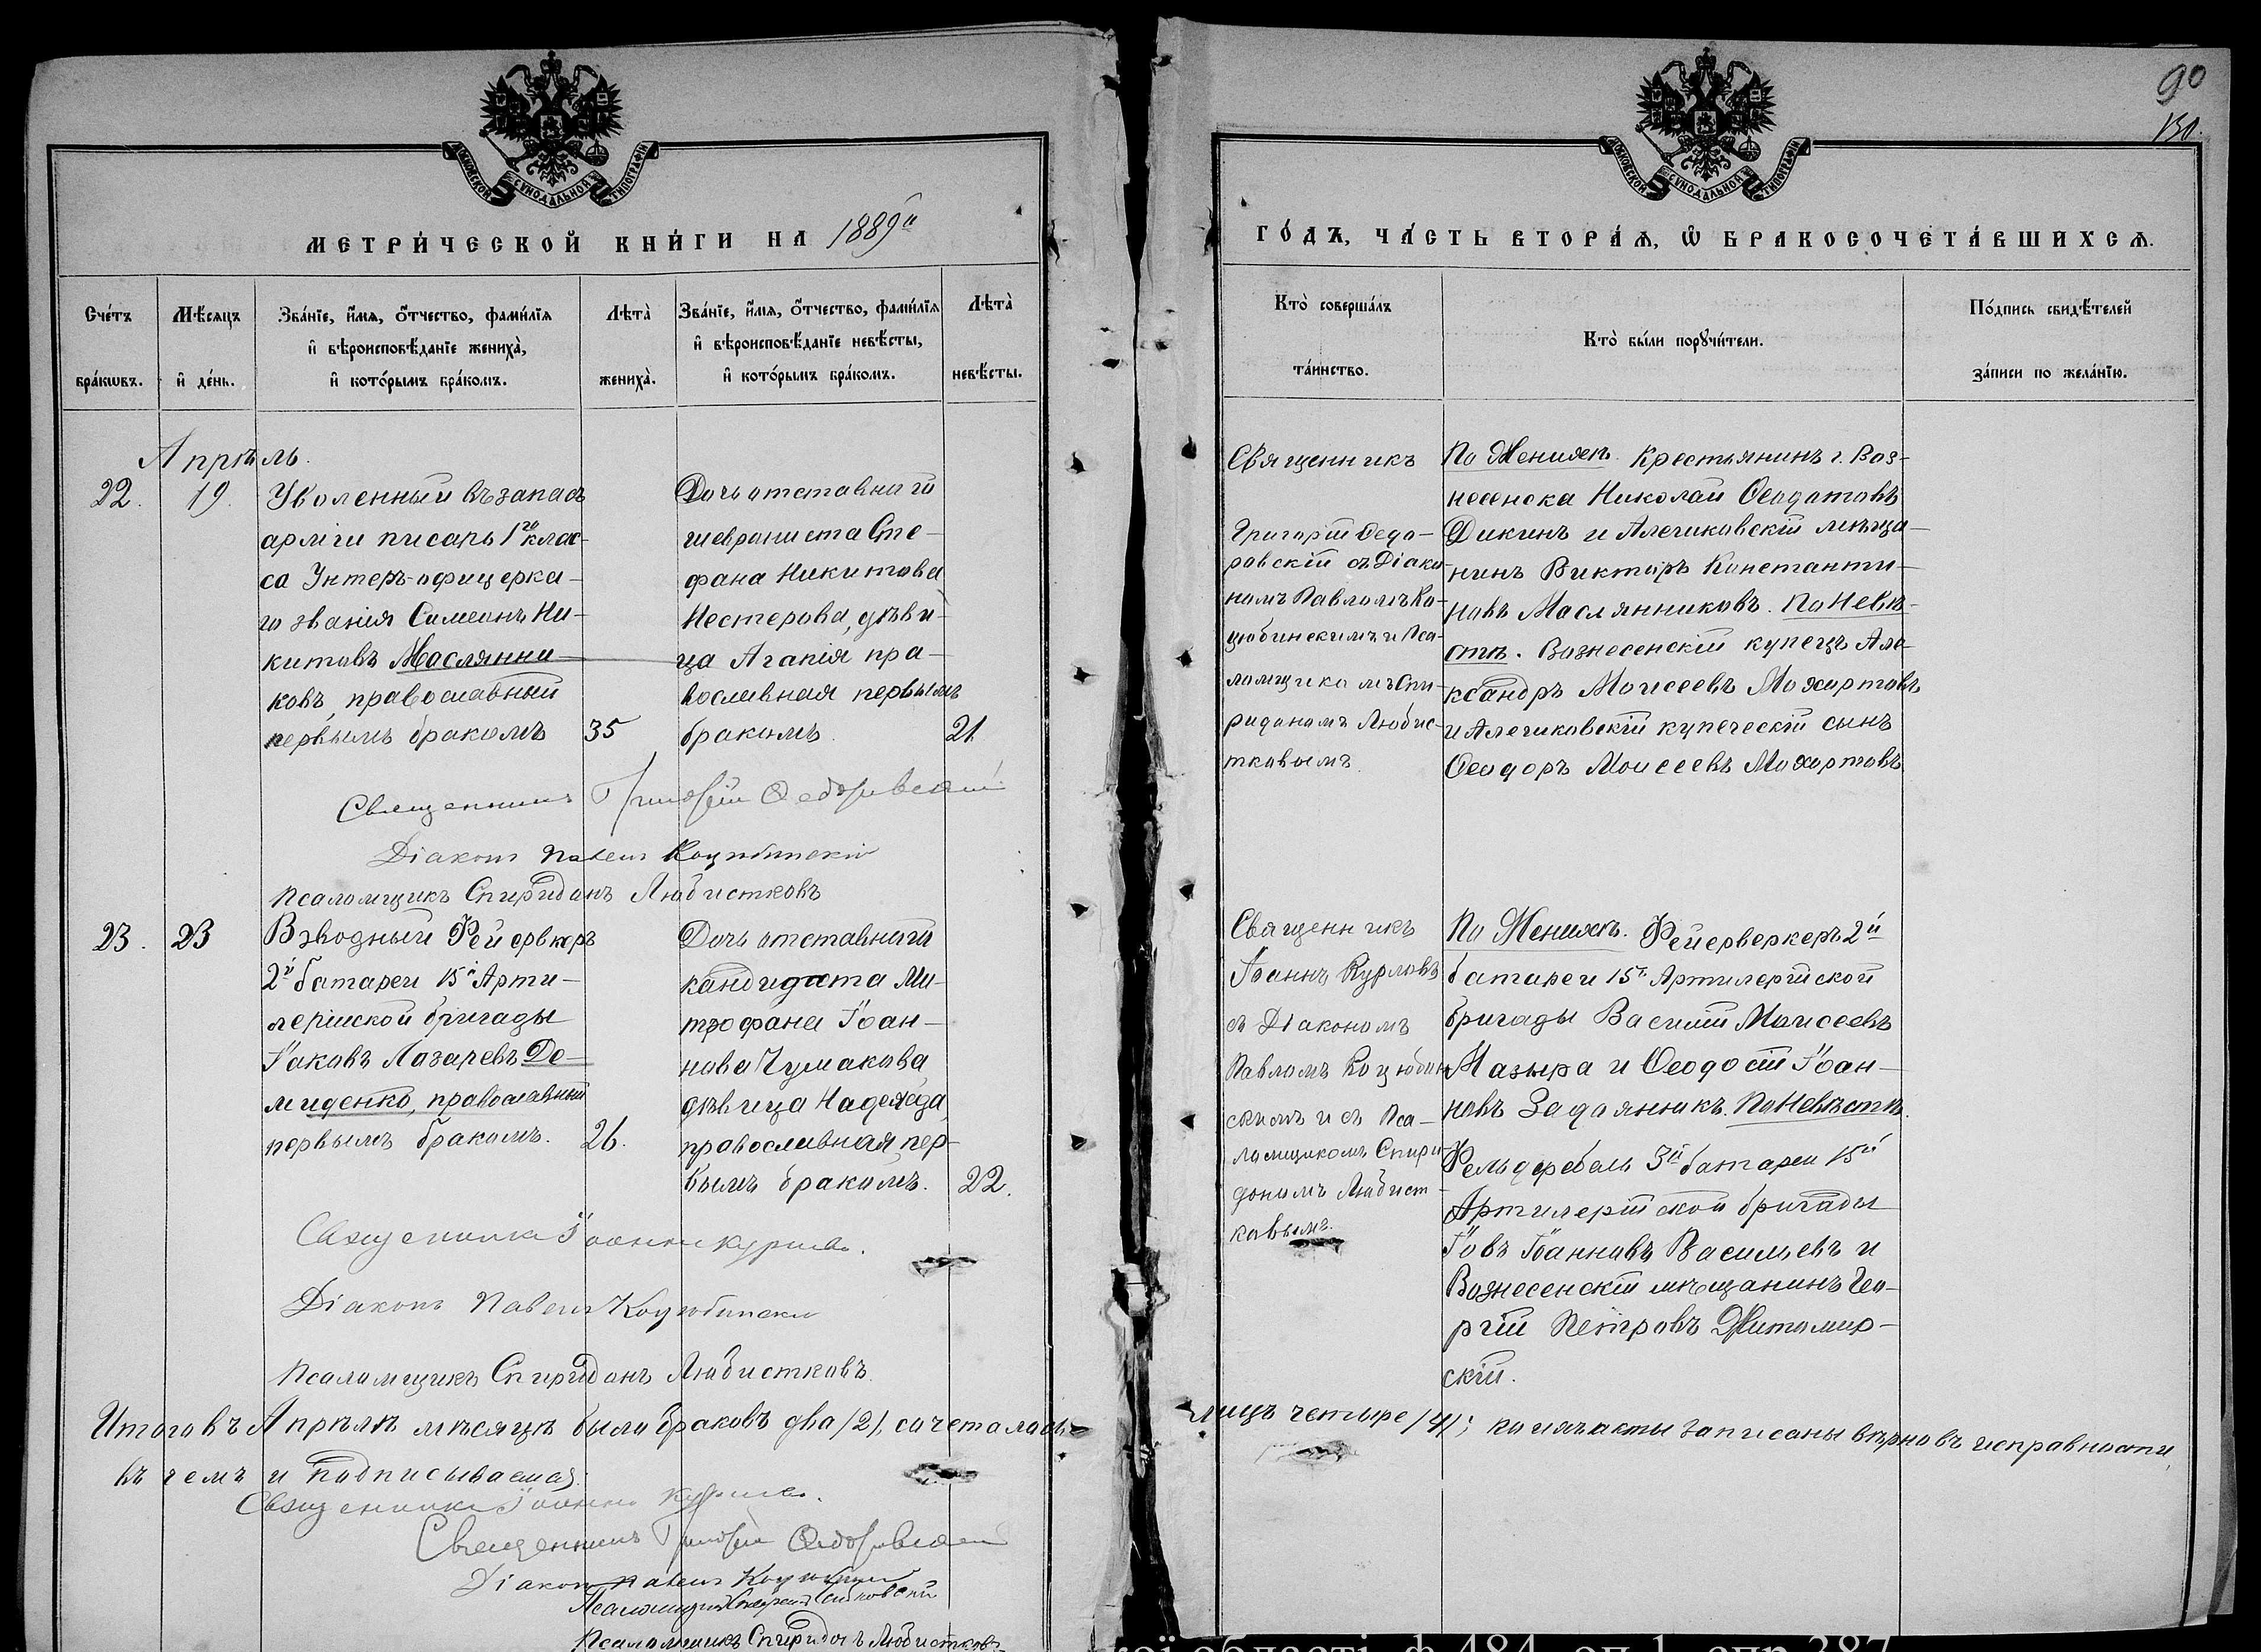 90
130.
МОСКОВСКОЙ СѴНОДАЛЬНОЙ ТИПОГРАФІИ
МОСКОВСКОЙ СѴНОДАЛЬНОЙ ТИПОГРАФІИ
МЕТРИ́ЧЕСКОЙ КНИ́ГИ НА 1889й
ГО́ДЪ, ЧА́СТЬ ВТОРА́Ѧ, Ѡ҆ БРАКОСОЧЕТА́ВШИХСѦ.
Сче́тъ бра́кѡвъ.
Мѣ́сѧцъ и҆ де́нь.
Зва́нїе, и҆́мѧ, ѻ҆́тчество, фами́лїѧ
и҆ вѣроисповѣ́данїе жениха̀,
и҆ кото́рымъ бра́комъ.
Лѣта̀ жениха̀.
Зва́нїе, и҆́мѧ, ѻ҆́тчество, фами́лїѧ
и҆ вѣроисповѣ́данїе невѣ́сты,
и҆ кото́рымъ бра́комъ.
Лѣта̀ невѣ́сты.
Кто̀ соверша́лъ
та́инство.
Кто̀ бы́ли порꙋчи́тели.
По́дпись свидѣ́телей
за́писи по жела́нїю.
Апрѣль.
22.
19.
Уволенный въ запасъ
арміи писарь 1го клас-
са Унтеръ-офицерска-
го званія Симеонъ Ни-
китовъ Маслянни-
ковъ, православный
первымъ бракомъ
35
Дочь отставнаго
Сте-
фана Никитова
Нестерова, дѣви-
ца Агапія пра-
вославная первымъ
бракомъ.
21
Священникъ
Григорій Федо-
ровскій съ Діако-
номъ Павломъ Ко-
цюбинскимъ и Пса-
ломщикомъ Спи-
ридономъ Любис-
тковымъ
По Женихѣ. Крестьянинъ г. Воз-
несенска Николай Ѳеодотовъ
Дикинъ и Алешковскій мѣща-
нинъ Викторъ Константи-
новъ Маслянниковъ. По Невѣ-
стѣ. Вознесенскій купецъ Але-
ксандръ Моисеевъ Мохортовъ
и Алешковскій купеческій сынъ
Ѳеодоръ Моисеевъ Мохортовъ
Священникъ Григорій Ѳедоровскій
Діаконъ Павелъ Коцюбинскій
Псаломщикъ Спиридонъ Любистковъ
23.
23
Взводный Фейервкеръ
2й батареи 15й Арти-
лерійской бригады
Іаковъ Лазаревъ Де-
миденко, православный
первымъ бракомъ.
26.
Дочь отставнаго
кандидата Ми-
трофана Іоан-
нова Чумакова
дѣвица Надежда
православная пер-
вымъ бракомъ.
22.
Священникъ
Іоаннъ Курловъ
съ Діакономъ
Павломъ Коцюбин-
скимъ и съ Пса-
ломщикомъ Спири-
дономъ Любист-
ковымъ.
По Женихѣ. Фейерверкеръ 2й
батареи 15й Артилерійской
бригады Василій Моисеевъ
Мазыра и Ѳеодосій Іоан-
новъ Задояннокъ. По Невѣстѣ.
Фельдфебель 3й батареи 15й
Артилерійской бригады
Іовъ Іоанновъ Васильевъ и
Вознесенскій мѣщанинъ Геор-
гій Петровъ Житомир-
скій.
Священникъ Іоаннъ Курловъ.
Діаконъ Павелъ Коцюбинскій
Псаломщикъ Спиридонъ Любистковъ.
Итого въ Апрѣлѣ мѣсяцѣ было браковъ два /2/, сочеталось
лицъ четыре /4/; акты записаны вѣрно въ исправности,
въ чемъ и подписываемся:
Священникъ Іоаннъ Курловъ.
Священникъ Григорій Ѳедоровскій
Діаконъ Павелъ Коцюбинскій
Псаломщикъ
Псаломщикъ Спиридонъ Любистковъ
кої області, ф.484, оп.1, спр.387